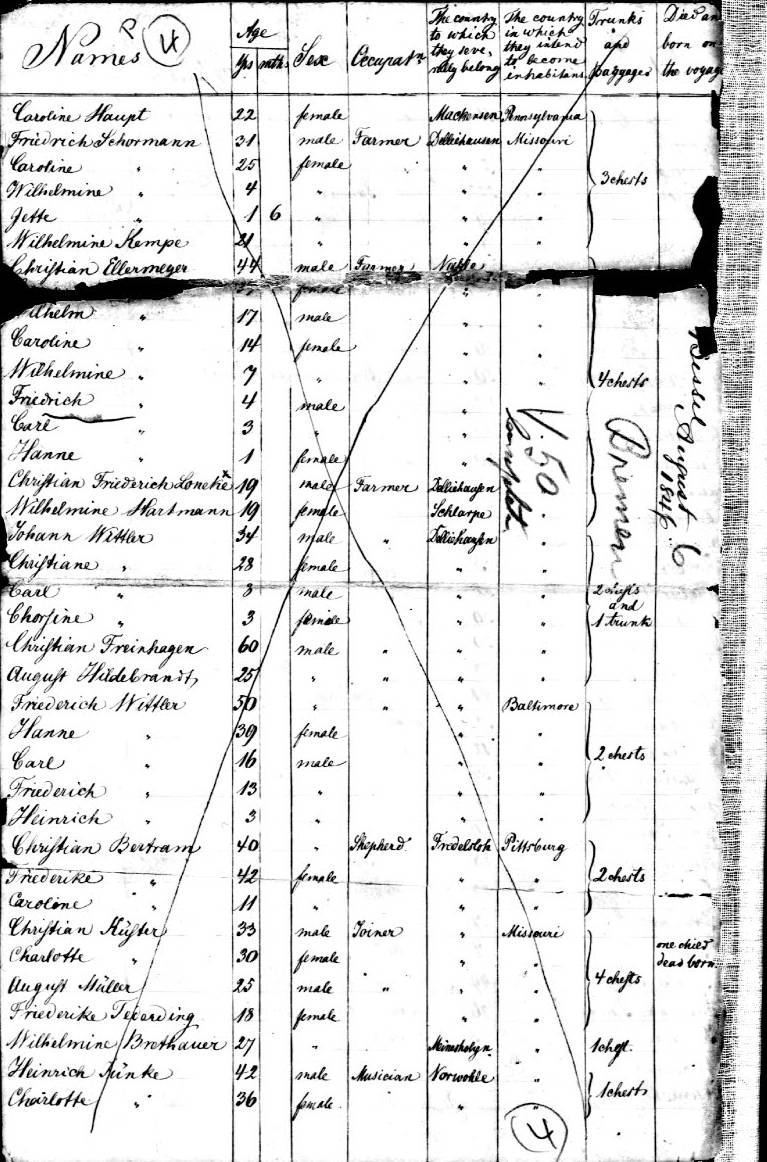 Names P 4
Age
yrs mths
Sex
Occupatn
The country to which they seve- rally belong
The country in which they intend to become inhabitans
Trunks and paggages
Died an born on the voyage
Caroline Haupt 22 female Mackensen Pennsylvania
Friedrich Schormann 31 male Farmer Delliehausen Missouri
Caroline " 25 female " "
Wilhelmine " 4 " " " 3 chests
Jette " 1 6 " " "
Wilhelmine Kempe 21 " " "
Christian Ellermeyer 44 male Farmer "
female " "
Wilhelm " 17 male " "
Caroline " 14 female " "
Wilhelmine " 7 " " " 4 chests
Friedrich " 4 male " "
Carl " 3 " "
Hanne " 1 female "
Christian Friederich 19 male Farmer Delliehausen
Wilhelmine Hartmann 19 female Schlarpe "
Johann Wittler 34 male " Delliehausen "
Christiane " 28 female " "
Carl " 3 male " " 2 chests
and
Chorsine " 3 female " " 1 trunk
Christian Freinhagen 60 male " " "
August Hildebrandt 25 " " " "
Friederich Wittler 50 " " " Baltimore
Hanne " 39 female " "
Carl " 16 male " " 2 chests
Friederich " 13 " " "
Heinrich " 3 " " "
Christian Bertram 40 " Shepherd Fredelsloh Pittsburg
Friederike " 42 female " " 2 chests
Caroline " 11 " " "
Christian Küster 33 male Joiner " Missouri
one child
Charlotte " 30 female " " dead born.
August Müller 25 male " " " 4 chests
Friederike 18 female " "
Wilhelmine Brethauer 27 " " 1 chest.
Heinrich 42 male Musician Norwohle "
Charlotte " 36 female " " 1 chests
V. 50
complet
Bremen
Bessel
August 6
1846
4